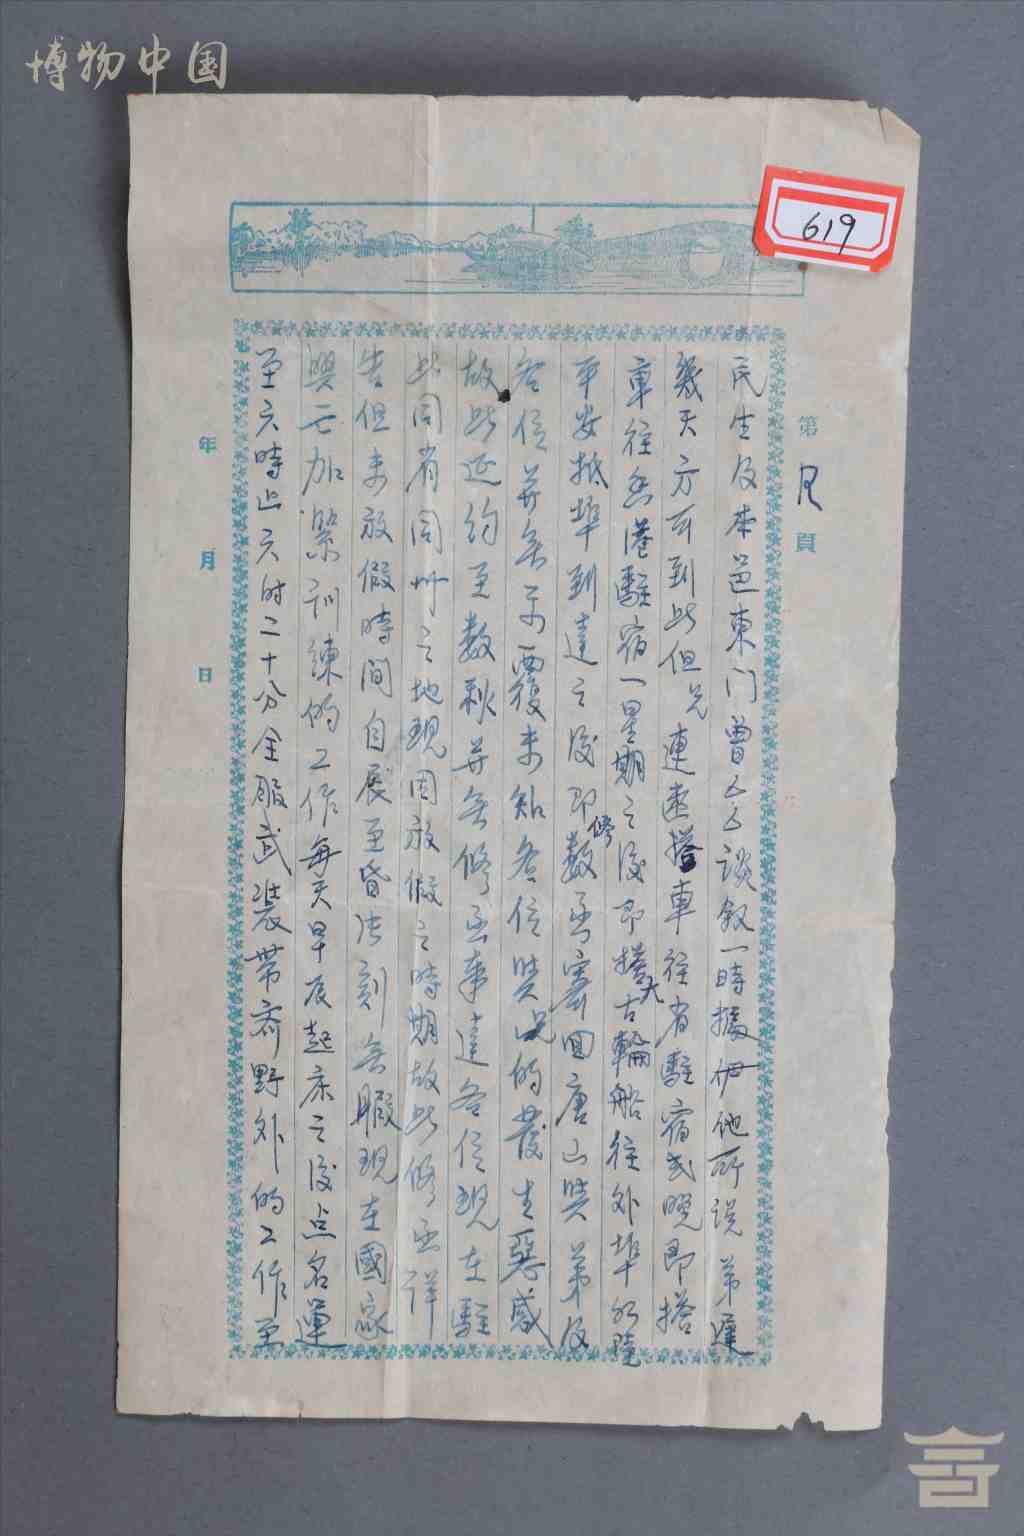 博物中国
619
第 頁
民生及本邑東门曾厶厶談叙一時據他所說弟遲
幾天方可到此但兄連速搭車往省駐宿弍晚即搭
車往香港駐宿一星期之後即搭大古輪船往外埠
平安抵埠到達之後即修數函寄回唐山與弟及
各位并無示覆未知各位與兄的發生惡感
故此延約至數秋并無修函奉達各位現在駐
此同省同州之地現因放假之時期故此修函詳
告但未放假時间自晨至昏法刻無暇現在國家
與云加緊訓練的工作每天早辰起床之後点名運
至六時止六时二十分全服武裝帶齐野外的工作至
年 月 日